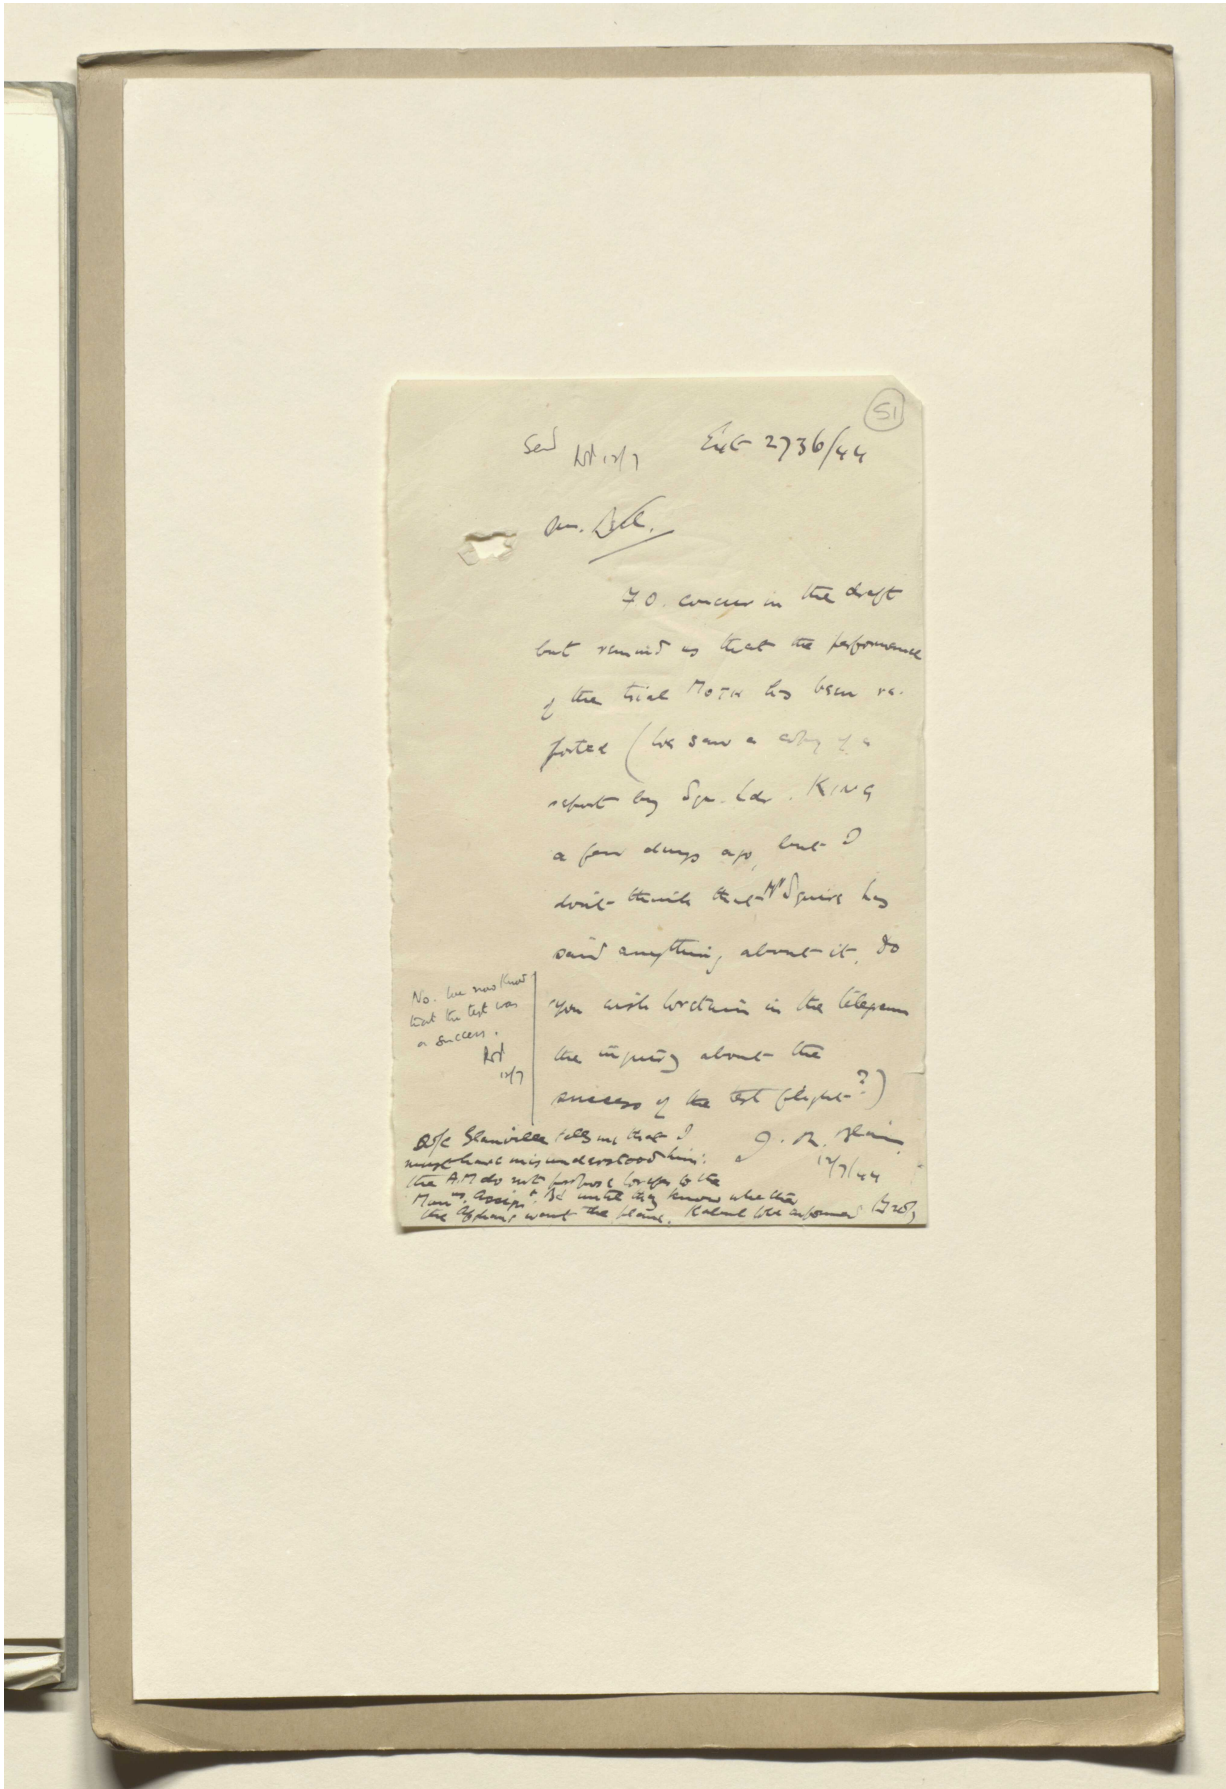 51
Send
12/7
Ext 2736/44
Mr.
F.O. concur in the draft
but remind us that the performance
of the trial MOTH has been re-
ported (We saw a copy of a
report by Sqn. Ldr. KING
a few days ago, but I
don't think that Mr Squire has
said anything about it. Do
you wish to retain in the telegram
the inquiry about the
success of the test flight?)
12/7/44
No. We now know
that the test was
a success.
12/7
Glanville tells me that I
must have misunderstood him:
the A.M do not propose to refer to the
Assignt. Bd until they know whether
the Afghans want the plane. Kabul informed